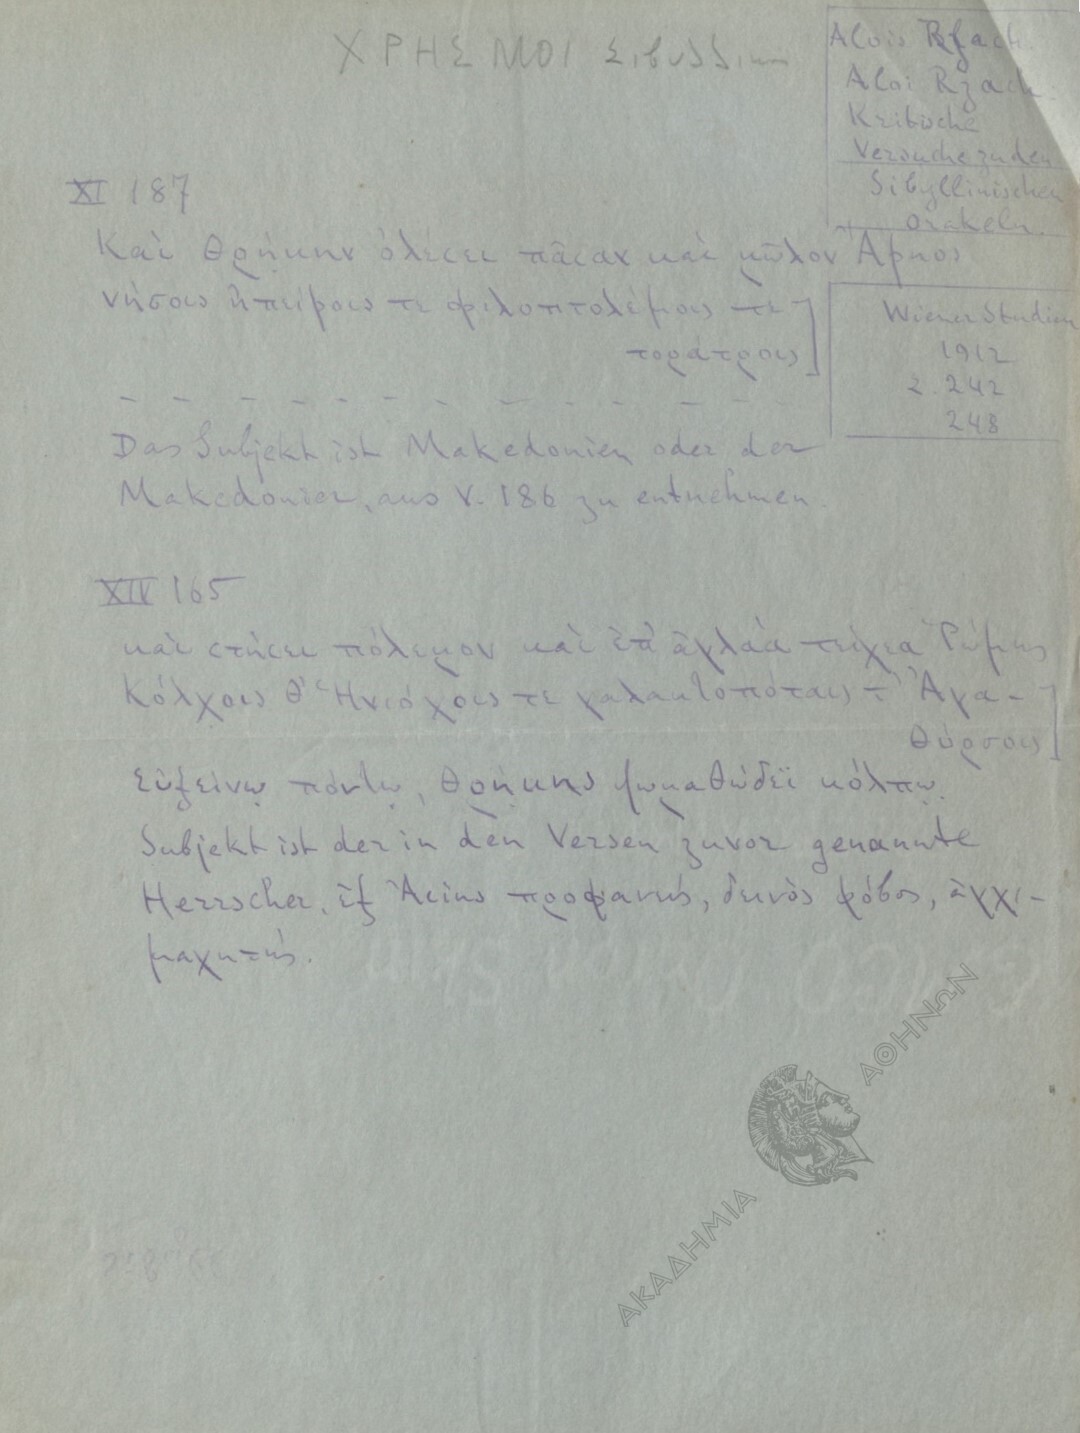 ΧΡΗΣΜΟΙ Σιβυλλικοι
Alois Rzach
Aloi Rzach
Kritische
Versuche zu den
Sibyllinischen
Orakeln.
XI 187
Καὶ Θρῄκην ὀλέσει πᾶσαν καὶ μῶλον Ἄρηος
νήσοις ἠπείροις τε φιλοπτολέμοις τε
τοράτροις]
Wiener Studien
1912
Σ. 242
248
Das Subjekt ist Makedonien oder der
Makedonier, aus V. 186 zu entnehmen.
XIV 165
καὶ στήσει πόλεμον καὶ ἐπ' ἀγλαὰ τείχεα Ῥώμης
Κόλχοις θ' Ἡνιόχοις τε γαλακτοπόταις τ' Ἀγα-
θύρσοις]
Εὐξείνῳ πόντῳ, Θρῄκης ψαμαθώδεϊ κόλπῳ.
Subjekt ist der in den Versen zuvor genannte
Herrscher, ἐξ Ἀσίης προφανείς, δεινὸς φόβος, ἀγχι-
μαχητής.
ΑΚΑΔΗΜΙΑ ΑΘΗΝΩΝ